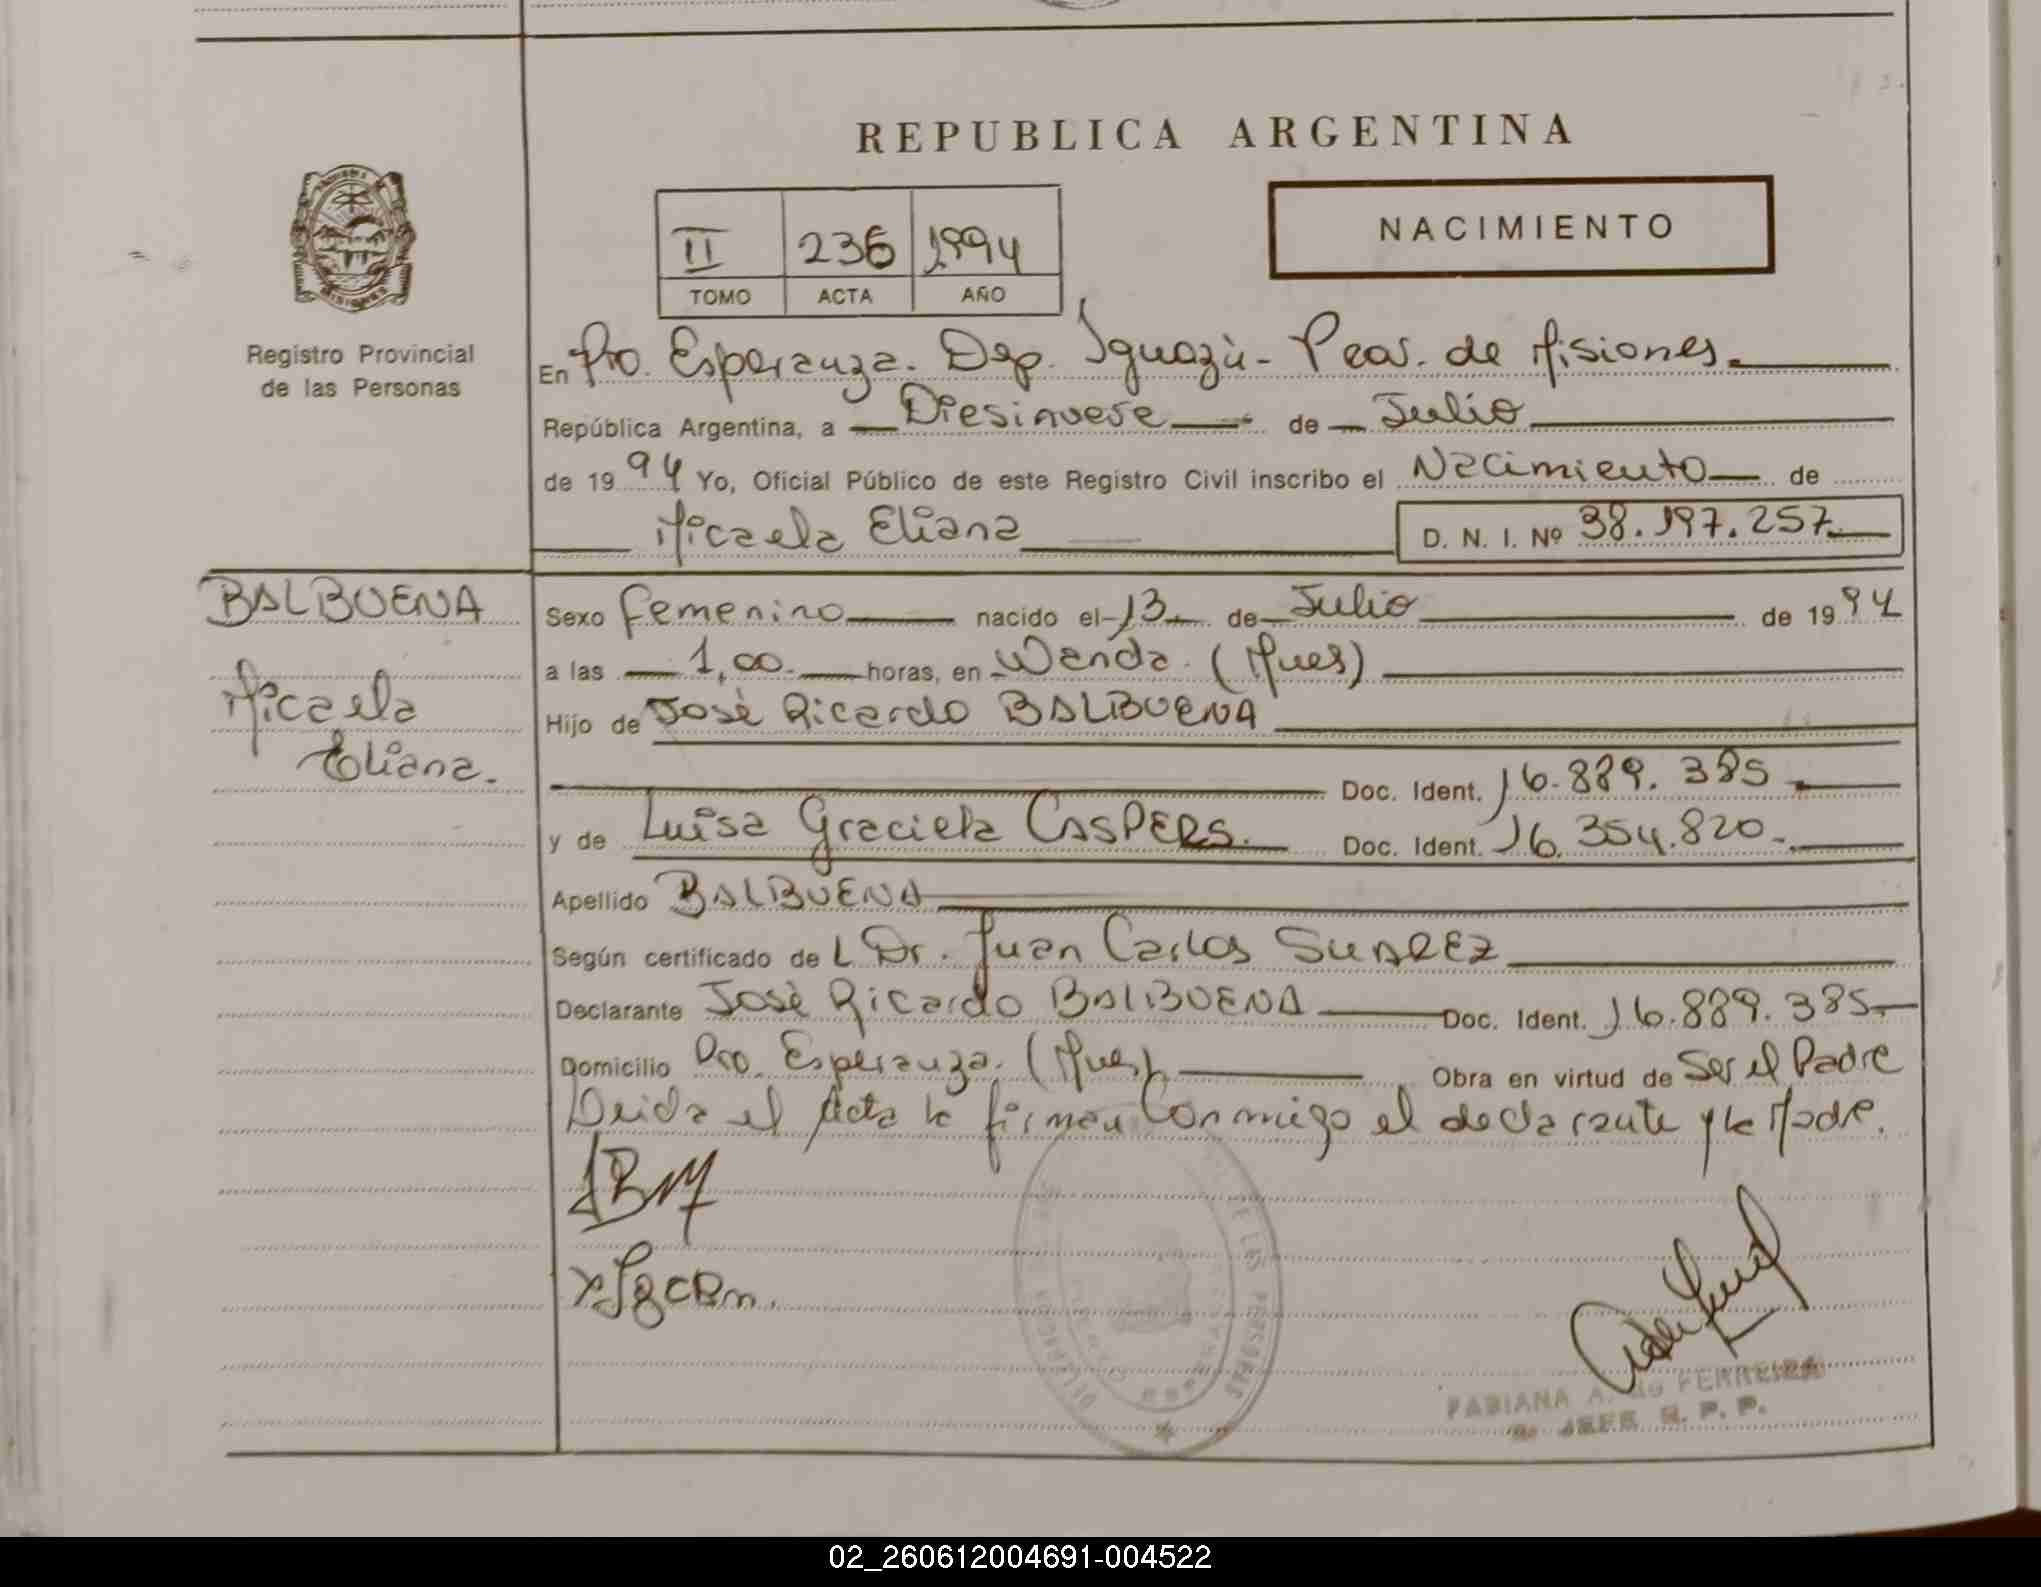 REPUBLICA ARGENTINA
NACIMIENTO
II 236 1994
TOMO ACTA AÑO
Registro Provincial
de las Personas
En Pto. Esperanza. Dep. Iguazù - Pcia. de Misiones.
República Argentina, a Diesinueve de Julio
de 1994 Yo, Oficial Público de este Registro Civil inscribo el Nacimiento de
Micaela Eliana D. N. I. Nº 38.197.257
BALBUENA
Micaela
Eliana.
Sexo femenino nacido el 13 de Julio de 1994
a las 1,00 horas, en Wanda. (Mnes)
Hijo de Josè Ricardo BALBUENA
Doc. Ident. 16.889.385
y de Luisa Graciela CASPERS. Doc. Ident. 16.354.820-
Apellido BALBUENA
Según certificado de L Dr. Juan Carlos SUAREZ
Declarante Josè Ricardo BALBUENA Doc. Ident. 16.889.385
Domicilio Pto. Esperanza. (Mnes) Obra en virtud de Ser el Padre
Leida el Acta la firman Conmigo el declarante y la Madre.
DE LAS PERSONAS
FABIANA A. de FERREIRA
JEFE R. P. P.
02_260612004691-004522